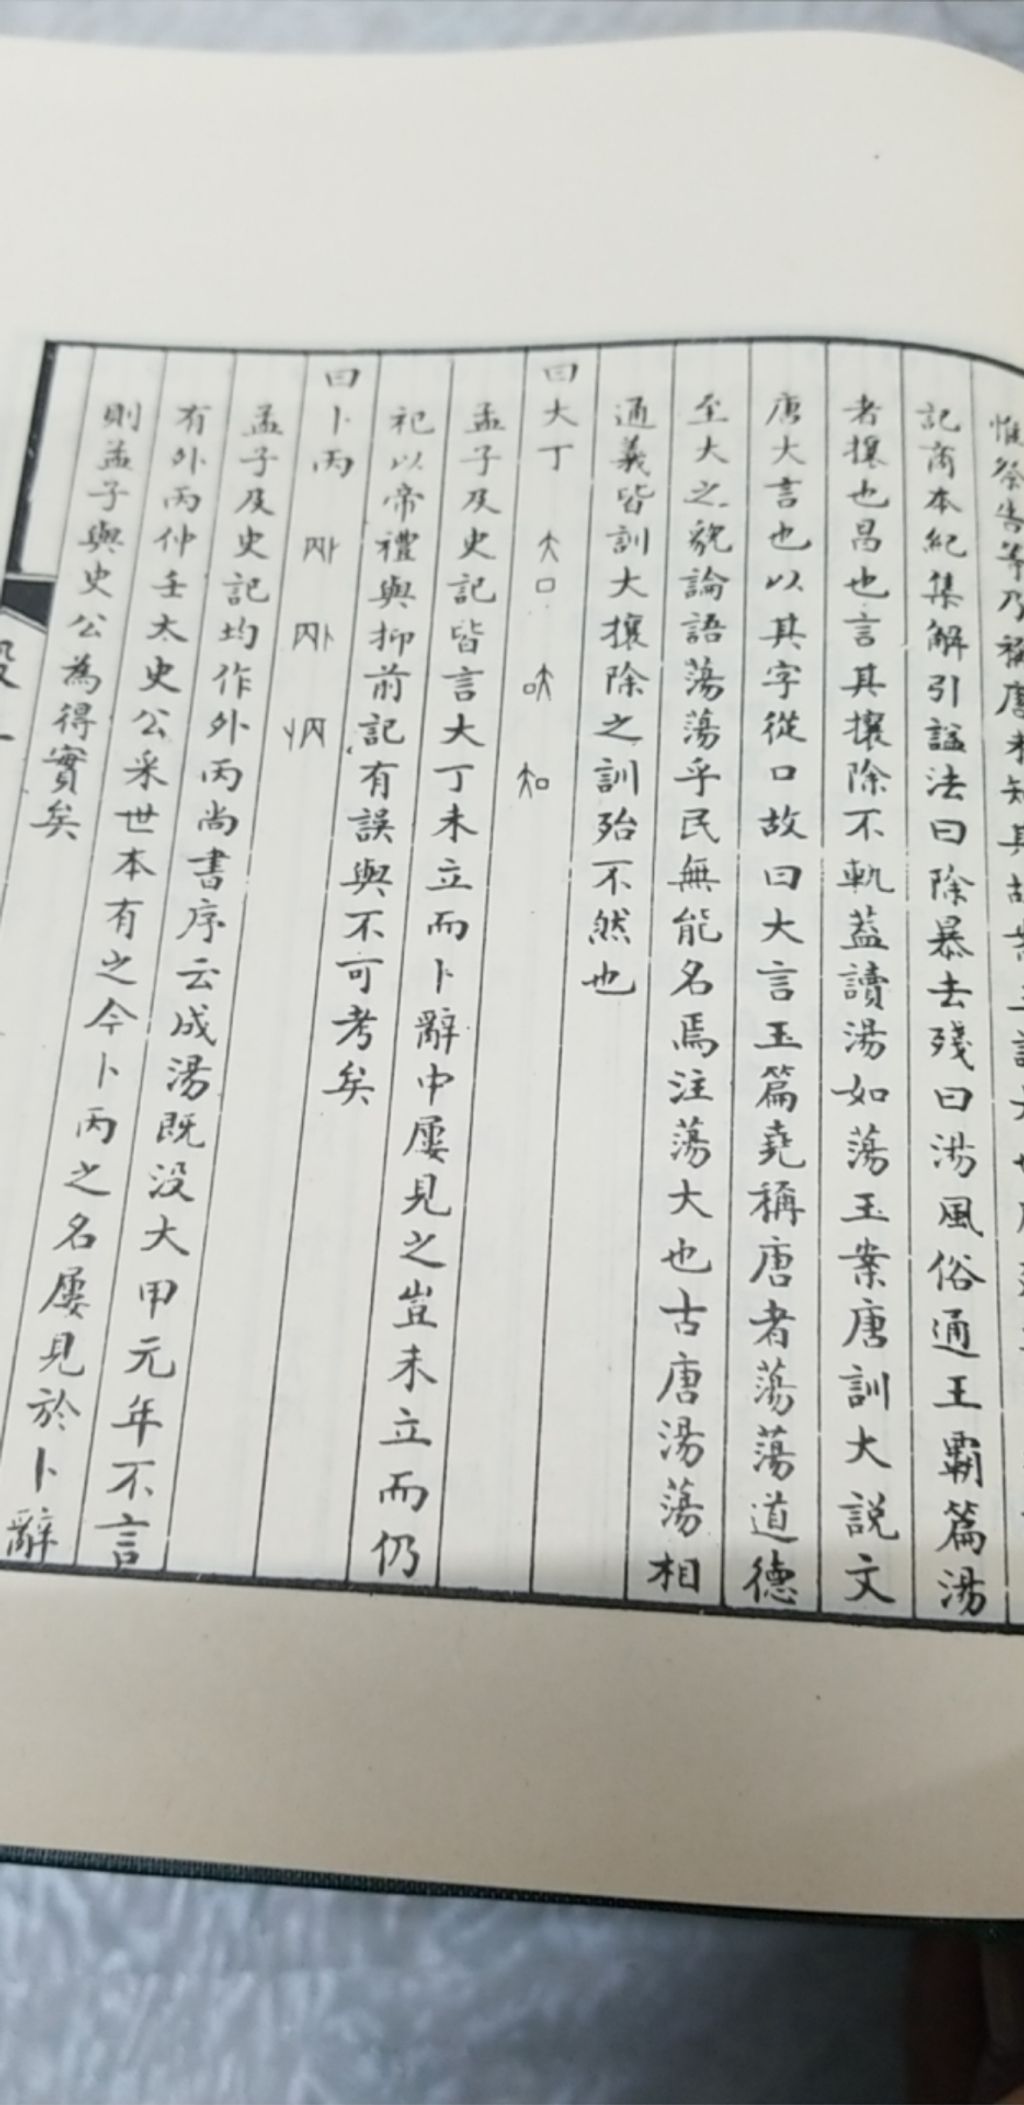 惟祭告等乃稱唐未知其故
記商本紀集解引諡法曰除暴去殘曰湯風俗通王霸篇湯
者攘也昌也言其攘除不軌蓋讀湯如蕩玉案唐訓大說文
唐大言也以其字從口故曰大言玉篇堯稱唐者蕩蕩道德
至大之貌論語蕩蕩乎民無能名焉注蕩大也古唐湯蕩相
通義皆訓大攘除之訓殆不然也
曰大丁
孟子及史記皆言大丁未立而卜辭中屢見之豈未立而仍
祀以帝禮與抑前記有誤與不可考矣
曰卜丙
孟子及史記均作外丙尚書序云成湯既沒大甲元年不言
有外丙仲壬太史公采世本有之今卜丙之名屢見於卜辭
則孟子與史公為得實矣